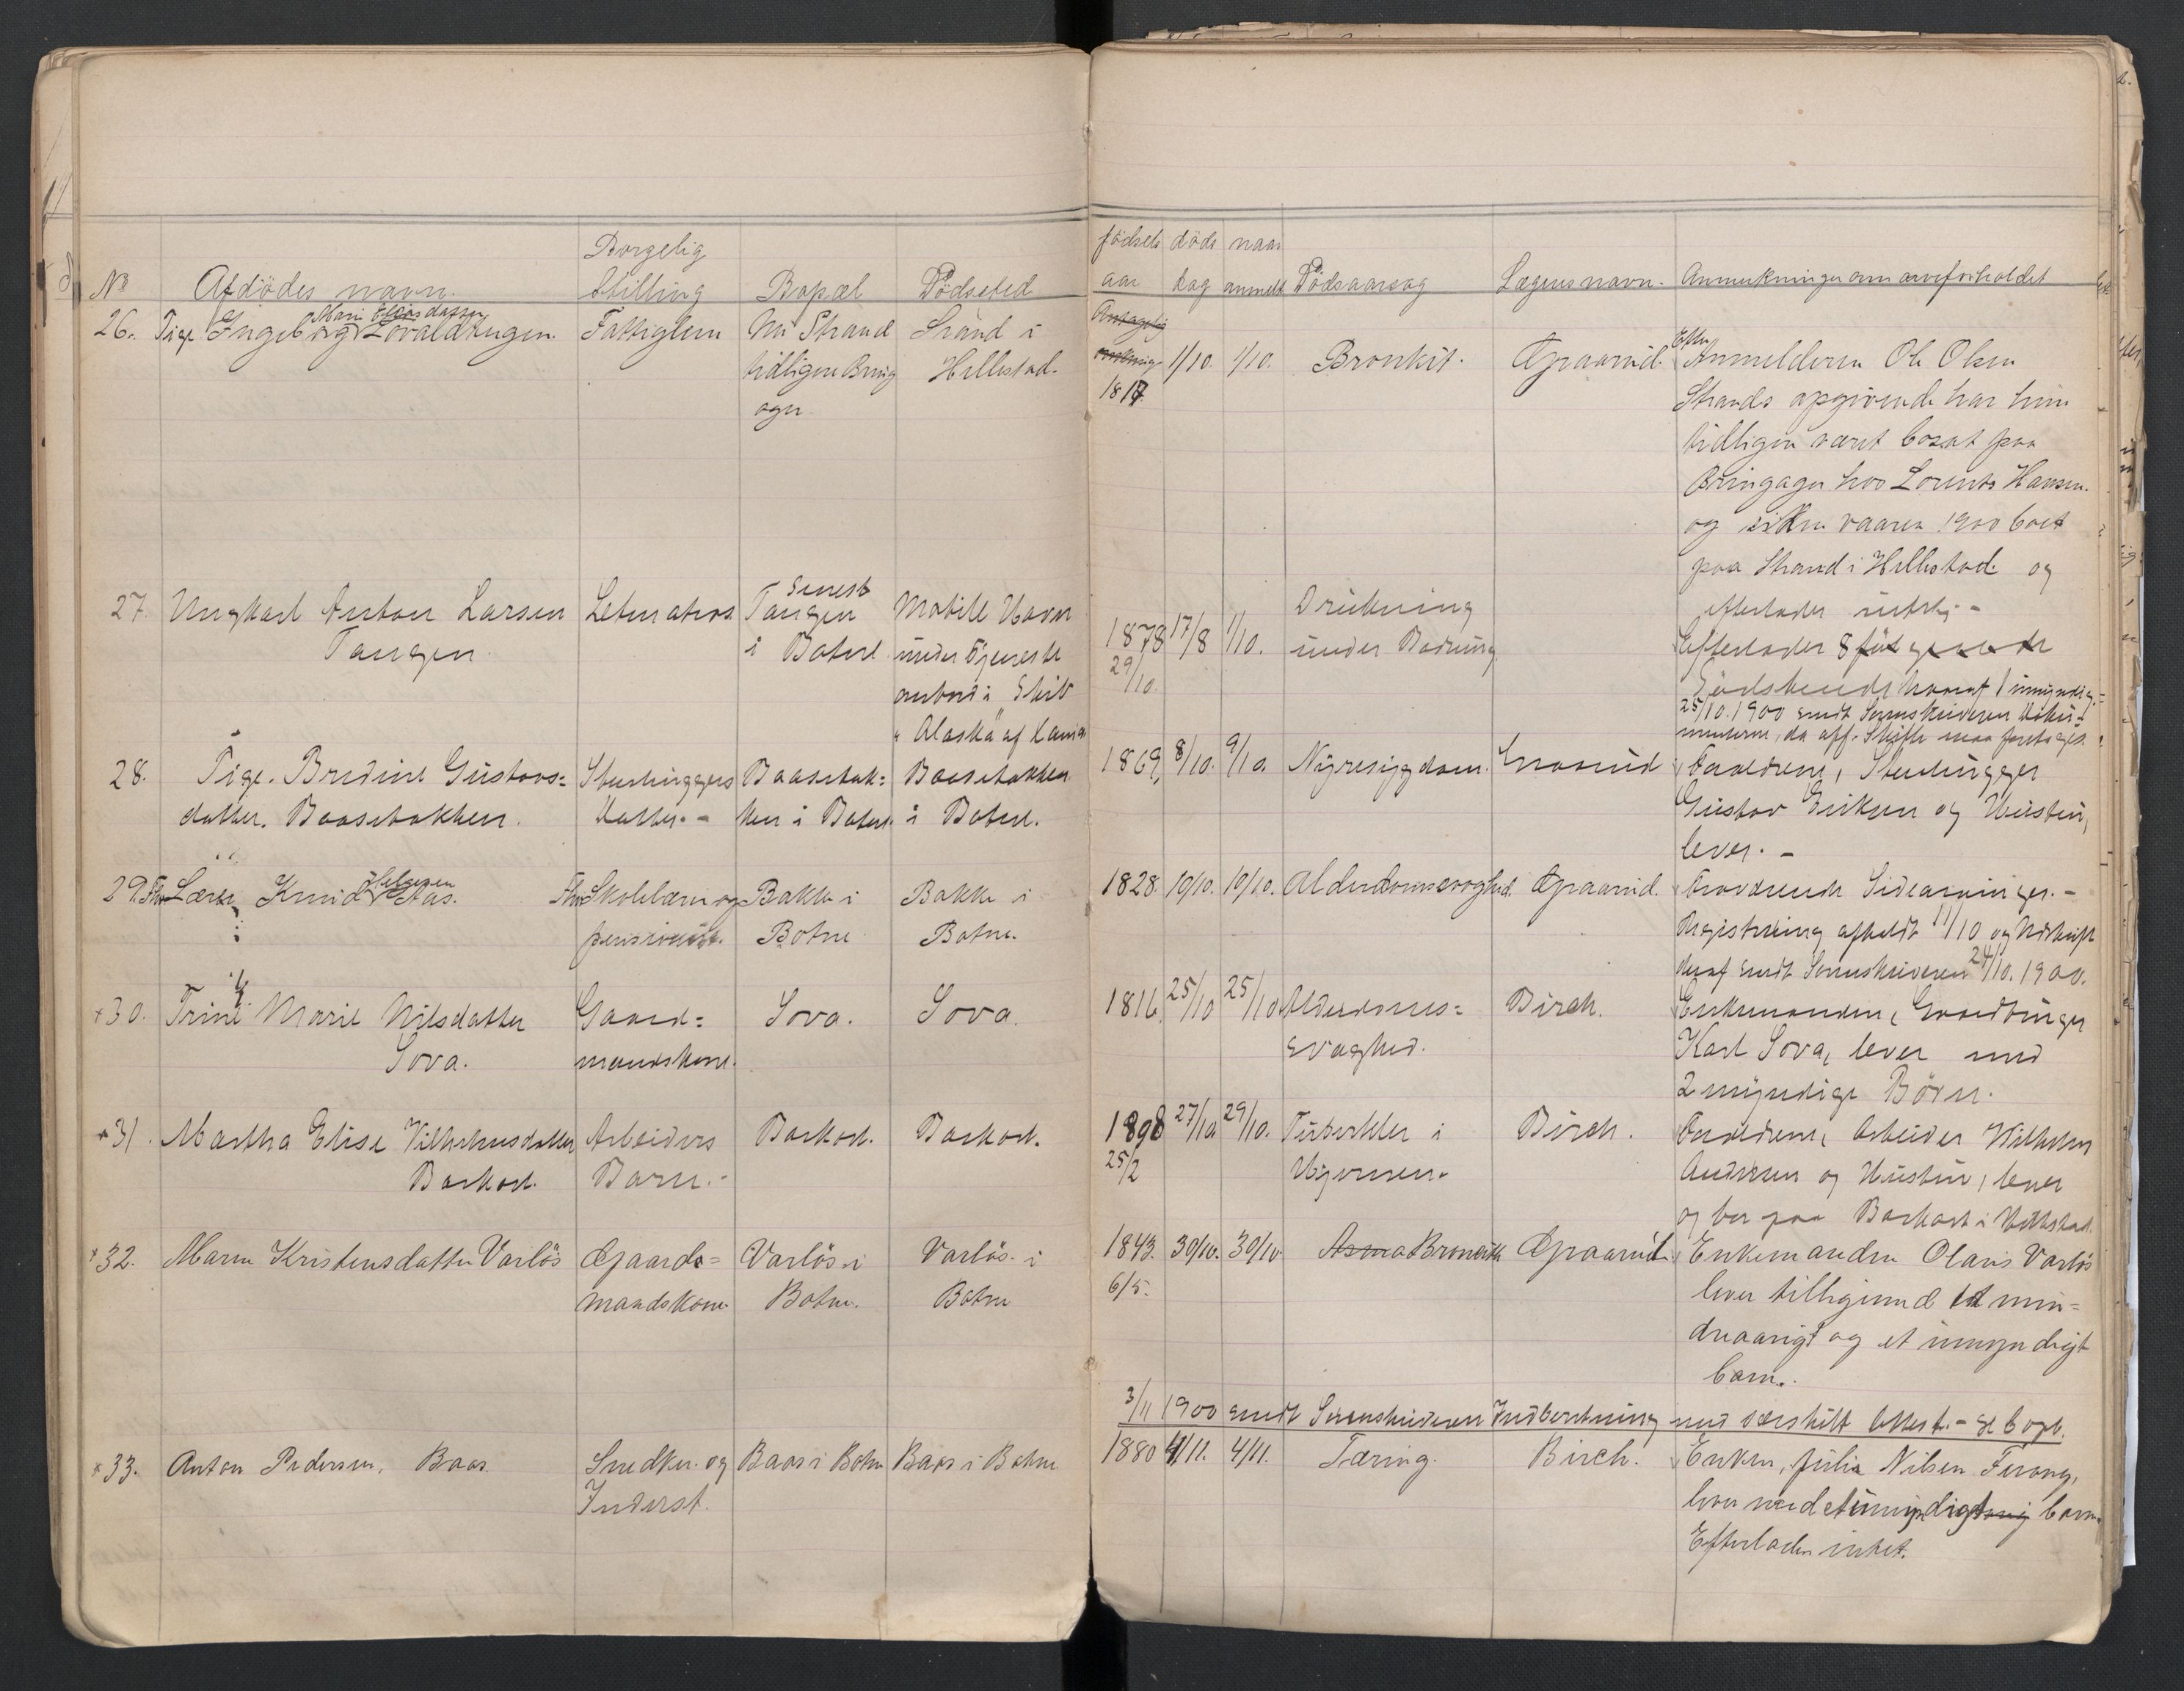 No
Afdödes navn.
Borgelig
Stilling
Bopæl
Dödssted
födsels
aar
döds
dag
naar
anmeldt
Dödsaarsag
Lægens navn.
Anmerkninger om arveforholdet
26. Pige Ingeborg Mari Eliasdatter Lövaldhugen.
Fattiglem
Nu Strand
tidligere Bring
ager
Strand i
Hillestad.
Antagelig
omkring
1817
1/10. 1/10. Bronkit. Graarud.
Efter
Anmelderen Ole Olsen
Strands opgivende har hun
tidligere været bosat paa
Bringager hos Lorents Hansen.
og siden vaaren 1900 boet
paa Strand i Hillestad og
efterlader intet. -
27. Ungkarl Anton Larsen
Tangen.
Letmatros.
Senest
Tangen
i Botne.
Mobile Havn
under Tjeneste
ombord i Skib
"Alaska" af Laurvig
1878
29/10.
17/8 1/10.
Drukning
under Badning.
Efterlader 8
Södskende hvoraf 1 umyndig. -
25/10. 1900 sendt Sorenskriveren Doku-
menterne, da off. Skifte maa foretages.
28. Pige. Bredine Gustavs=
datter. Baasebakken.
Stenhuggers
Datter. -
Baasebak=
ken i Botne.
Baasebakken
i Botne.
1869, 8/10. 9/10. Nyresygdom. Graarud.
Forældrene, Stenhugger
Gustav Eriksen og Hustru,
lever. -
29. Fhv Lærer Knud Helgesen Aas.
Fhv Skolelærer og
pensionist.
Bakke i
Botne
Bakke i
Botne.
1828. 10/10. 10/10. Alderdomssvaghed. Graarud.
Fraværende Sidearvinger. -
Registrering afholdt 11/10 og Udskrift
deraf sendt Sorenskriveren 24/10. 1900.
+30. Trine Marie Nilsdatter
Sova.
Gaard=
mandskone.
Sova.
Sova.
1816. 25/10 25/10 Alderdoms=
svaghed.
Birch.
Enkemanden, Gaardbruger
Karl Sova, lever med
2 myndige Börn.
+31. Martha Elise Vilhelmsdatter
Barkost.
Arbeiders
Barn. -
Barkost.
Barkost.
1898
25/2
27/10 29/10. Tuberkler i
Hjernen.
Birch.
Forældrene, Arbeider Wilhelm
Andersen og Hustru, lever
og bor paa Barkost i Hillestad.
+32. Maren Kristensdatter Varlös
Gaard=
mandskone
Varlös i
Botne.
Varlös i
Botne
1843.
6/5.
30/10. 30/10 Asma Bronchit Graarud.
Enkemanden Olavis Varlös
lever tilligemed et min=
dreaarigt og et umyndigt
barn.
3/11 1900 sendt Sorenskriveren Indberetning med særskilt Attest. - Se bogb.
+33. Anton Pedersen, Baas.
Snedker. og
Inderst.
Baas i Botne
Baas i Botne
1880 4/11. 4/11. Tæring. Birch.
Enken, Julia Nilsen
lever med et umyndigt barn.
Efterlader intet.